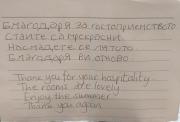 БЛАГОДАРЯ ЗА ГОСТОПРИЕМСТВОТО
СТАИТЕ СА ПРЕКРАСНИ
НАСЛАДЕТЕ СЕ ЛЯТОТО
БЛАГОДАРЯ ВИ ОТНОВО
Thank you for your hospitality
The rooms are lovely
Enjoy the summer
Thank you again